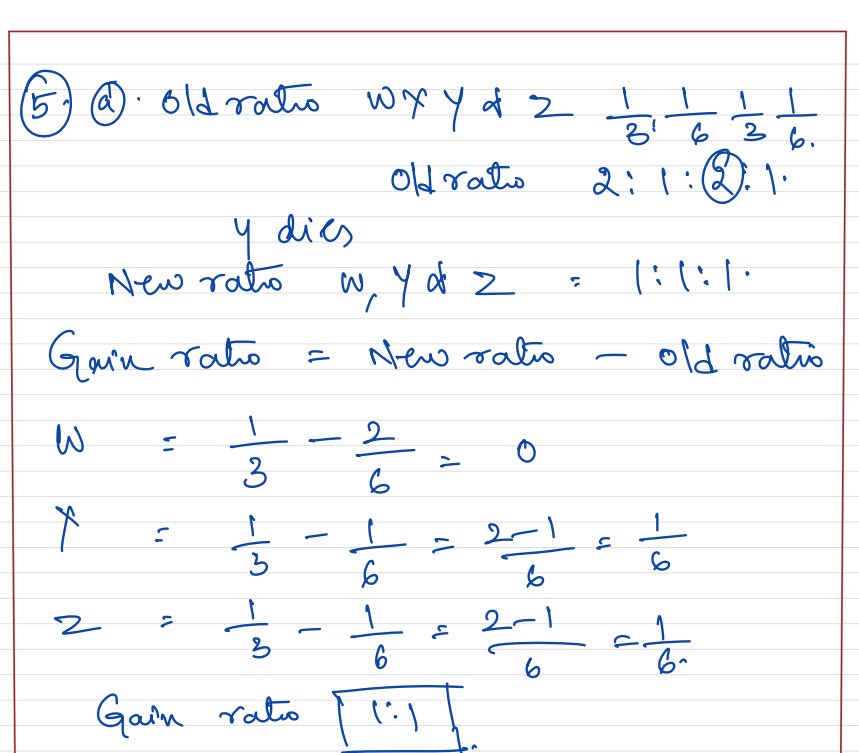 5. a. Old ratio W X Y & Z 1/3, 1/6 1/3 1/6.
Old ratio 2:1:2:1.
Y dies
New ratio W, Y & Z = 1:1:1.
Gain ratio = New ratio - old ratio
W = 1/3 - 2/6 = 0
X = 1/3 - 1/6 = 2-1/6 = 1/6
Z = 1/3 - 1/6 = 2-1/6 = 1/6.
Gain ratio 1:1